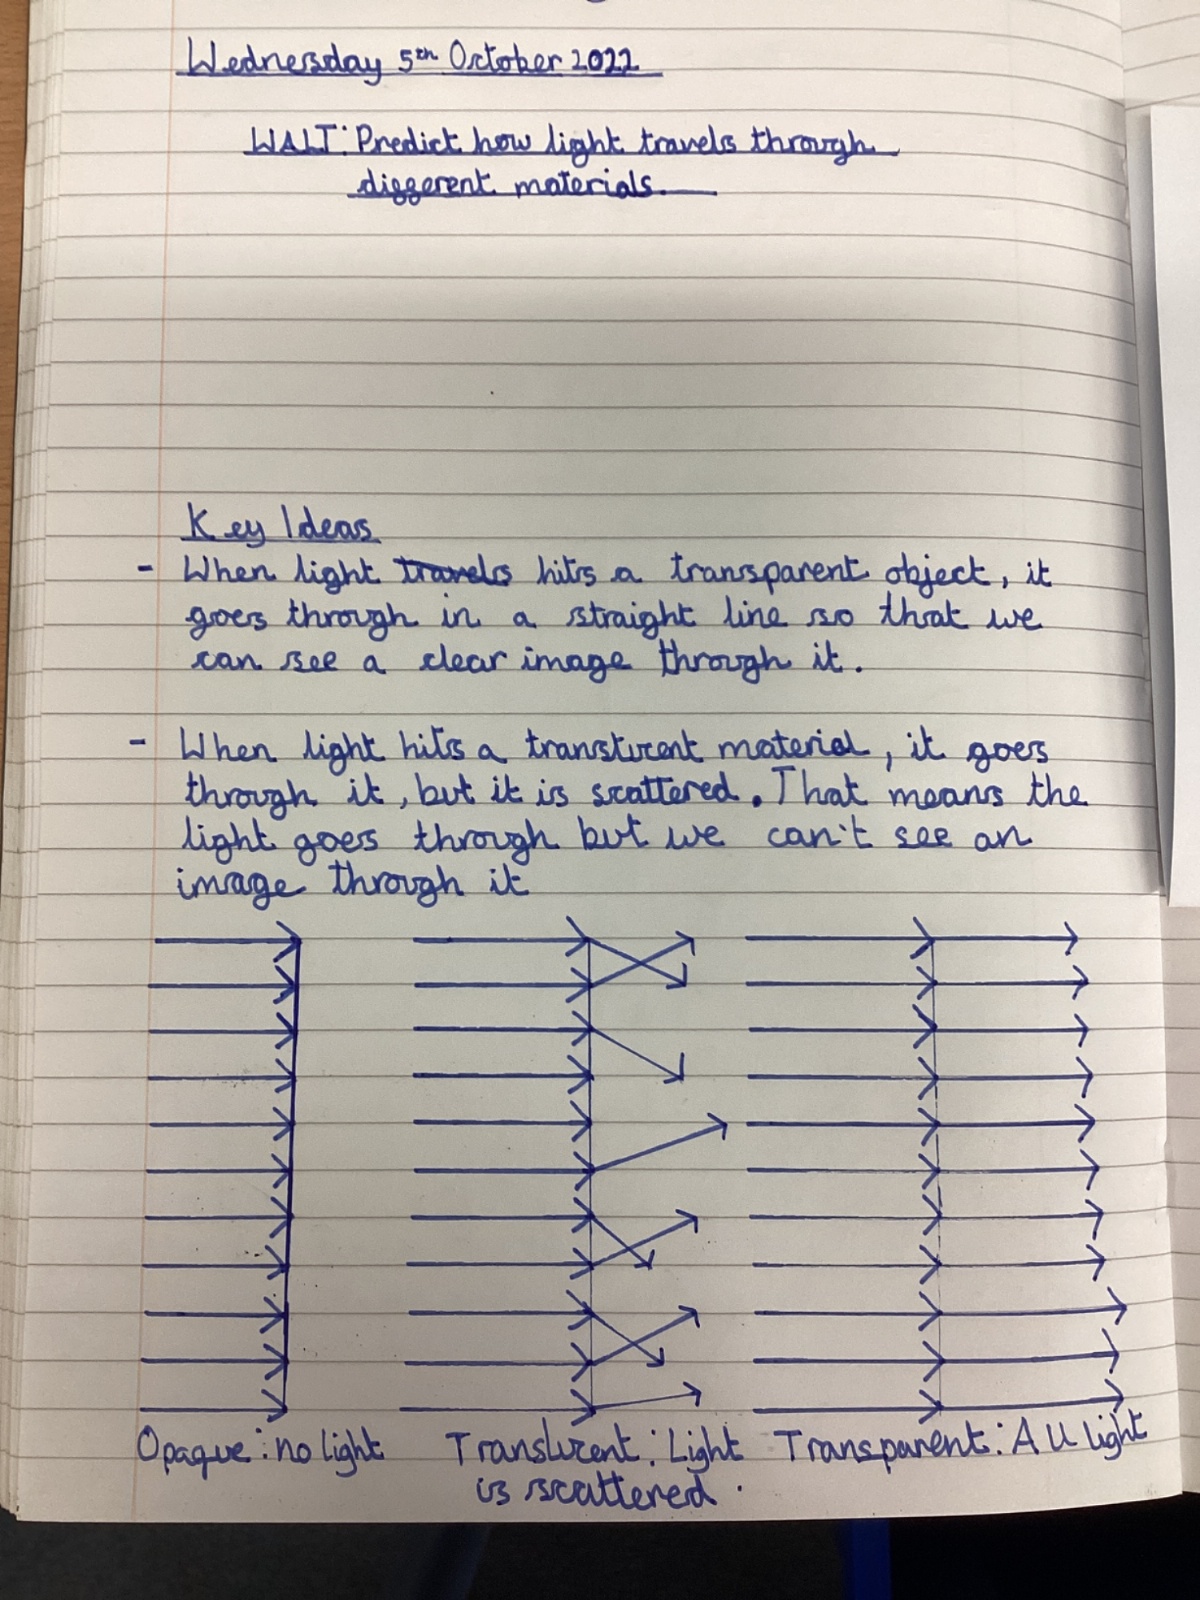 Wednesday 5th October 2022
WALT: Predict how light travels through
different materials.
Key Ideas
- When light travels hits a transparent object, it
goes through in a straight line so that we
can see a clear image through it.
- When light hits a translucent material, it goes
through it, but it is scattered. That means the
light goes through but we can't see an
image through it
Opaque: no light
Translucent: Light
is scattered.
Transparent: All light